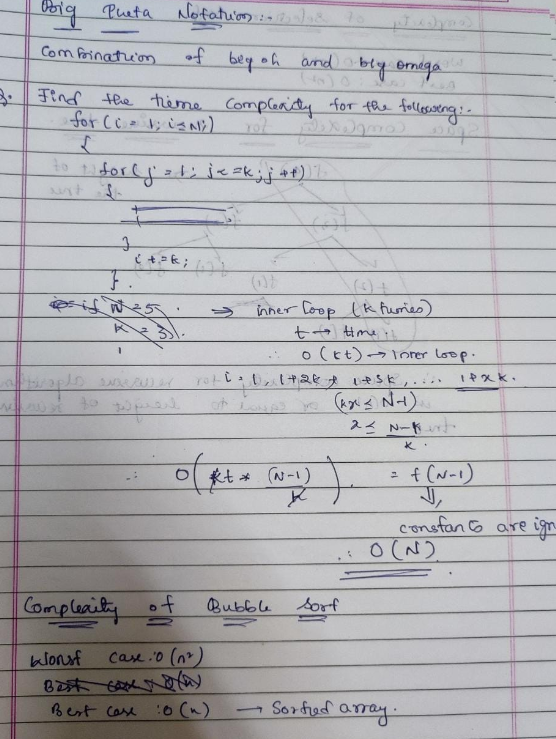 Big Theta Notation :-
Combination of beg oh and big omega
Q. Find the time complexity for the following:-
for (i = 1; i ≤ N;)
{
for (j = 1; j <= k; j ++)
{
}
i += k;
}.
if N = 5 ⇒ inner loop (k times)
k = 3 t → time.
∴ O (kt) → Inner loop.
i = 1, 1+2k, 1+3k, .... 1+xk.
(kx ≤ N-1)
x ≤ N-k / k.
∴ O ( kt * (N-1) / k ) = t (N-1)
⇓,
constants are ign
∴ O (N).
Complexity of Bubble Sort
Worst case : O (n²)
Best case : O (n)
Best case : O (n) → Sorted array.